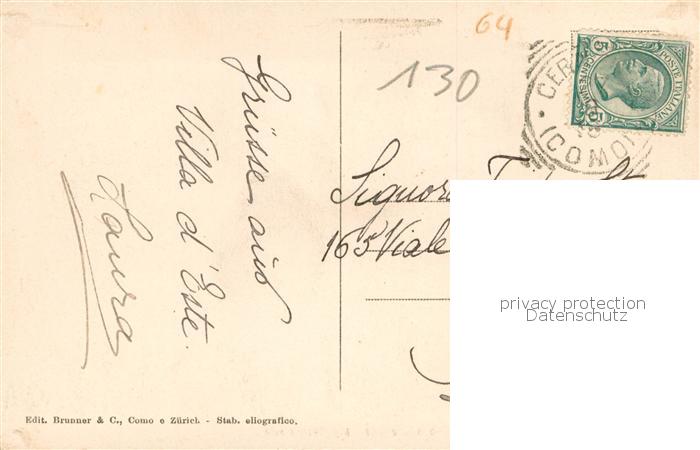 Grüsse aus
Villa d'Este.
Laura
64
130
5 POSTE ITALIANE 5
CENTESIMI
(COMO)
Signora
165 Viale
privacy protection
Datenschutz
Edit. Brunner & C., Como e Zürich - Stab. eliografico.